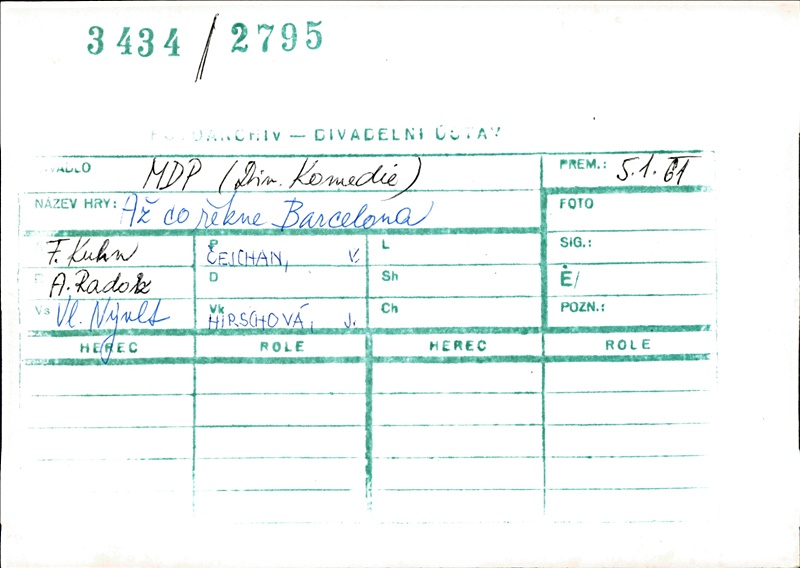 3434 / 2795
FOTOARCHIV — DIVADELNÍ ÚSTAV
DIVADLO MDP (Div. Komedie) PREM.: 5.1.61
NÁZEV HRY: Až co řekne Barcelona FOTO
F. Kuhn P ČEJCHAN, V. L SIG.:
A. Radok D Sh Ė/
Vs Vl. Nývlt Vk HIRSCHOVÁ, J. Ch POZN.:
HEREC ROLE HEREC ROLE